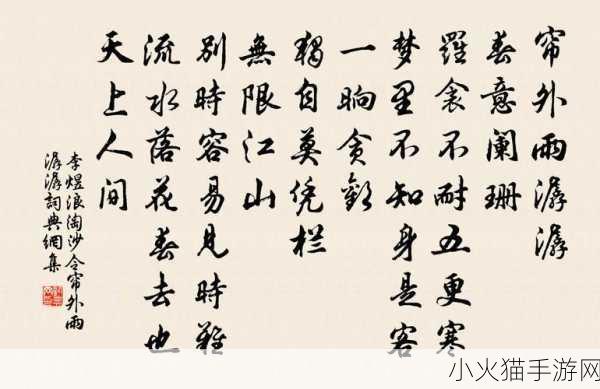 帘外雨潺潺
春意阑珊
羅衾不耐五更寒
梦里不知身是客
一晌贪歡
獨自莫凭栏
無限江山
别時容易见時難
流水落花春去也
天上人间
李煜浪淘沙令帘外雨
潺潺詞典網集
小火猫手游网